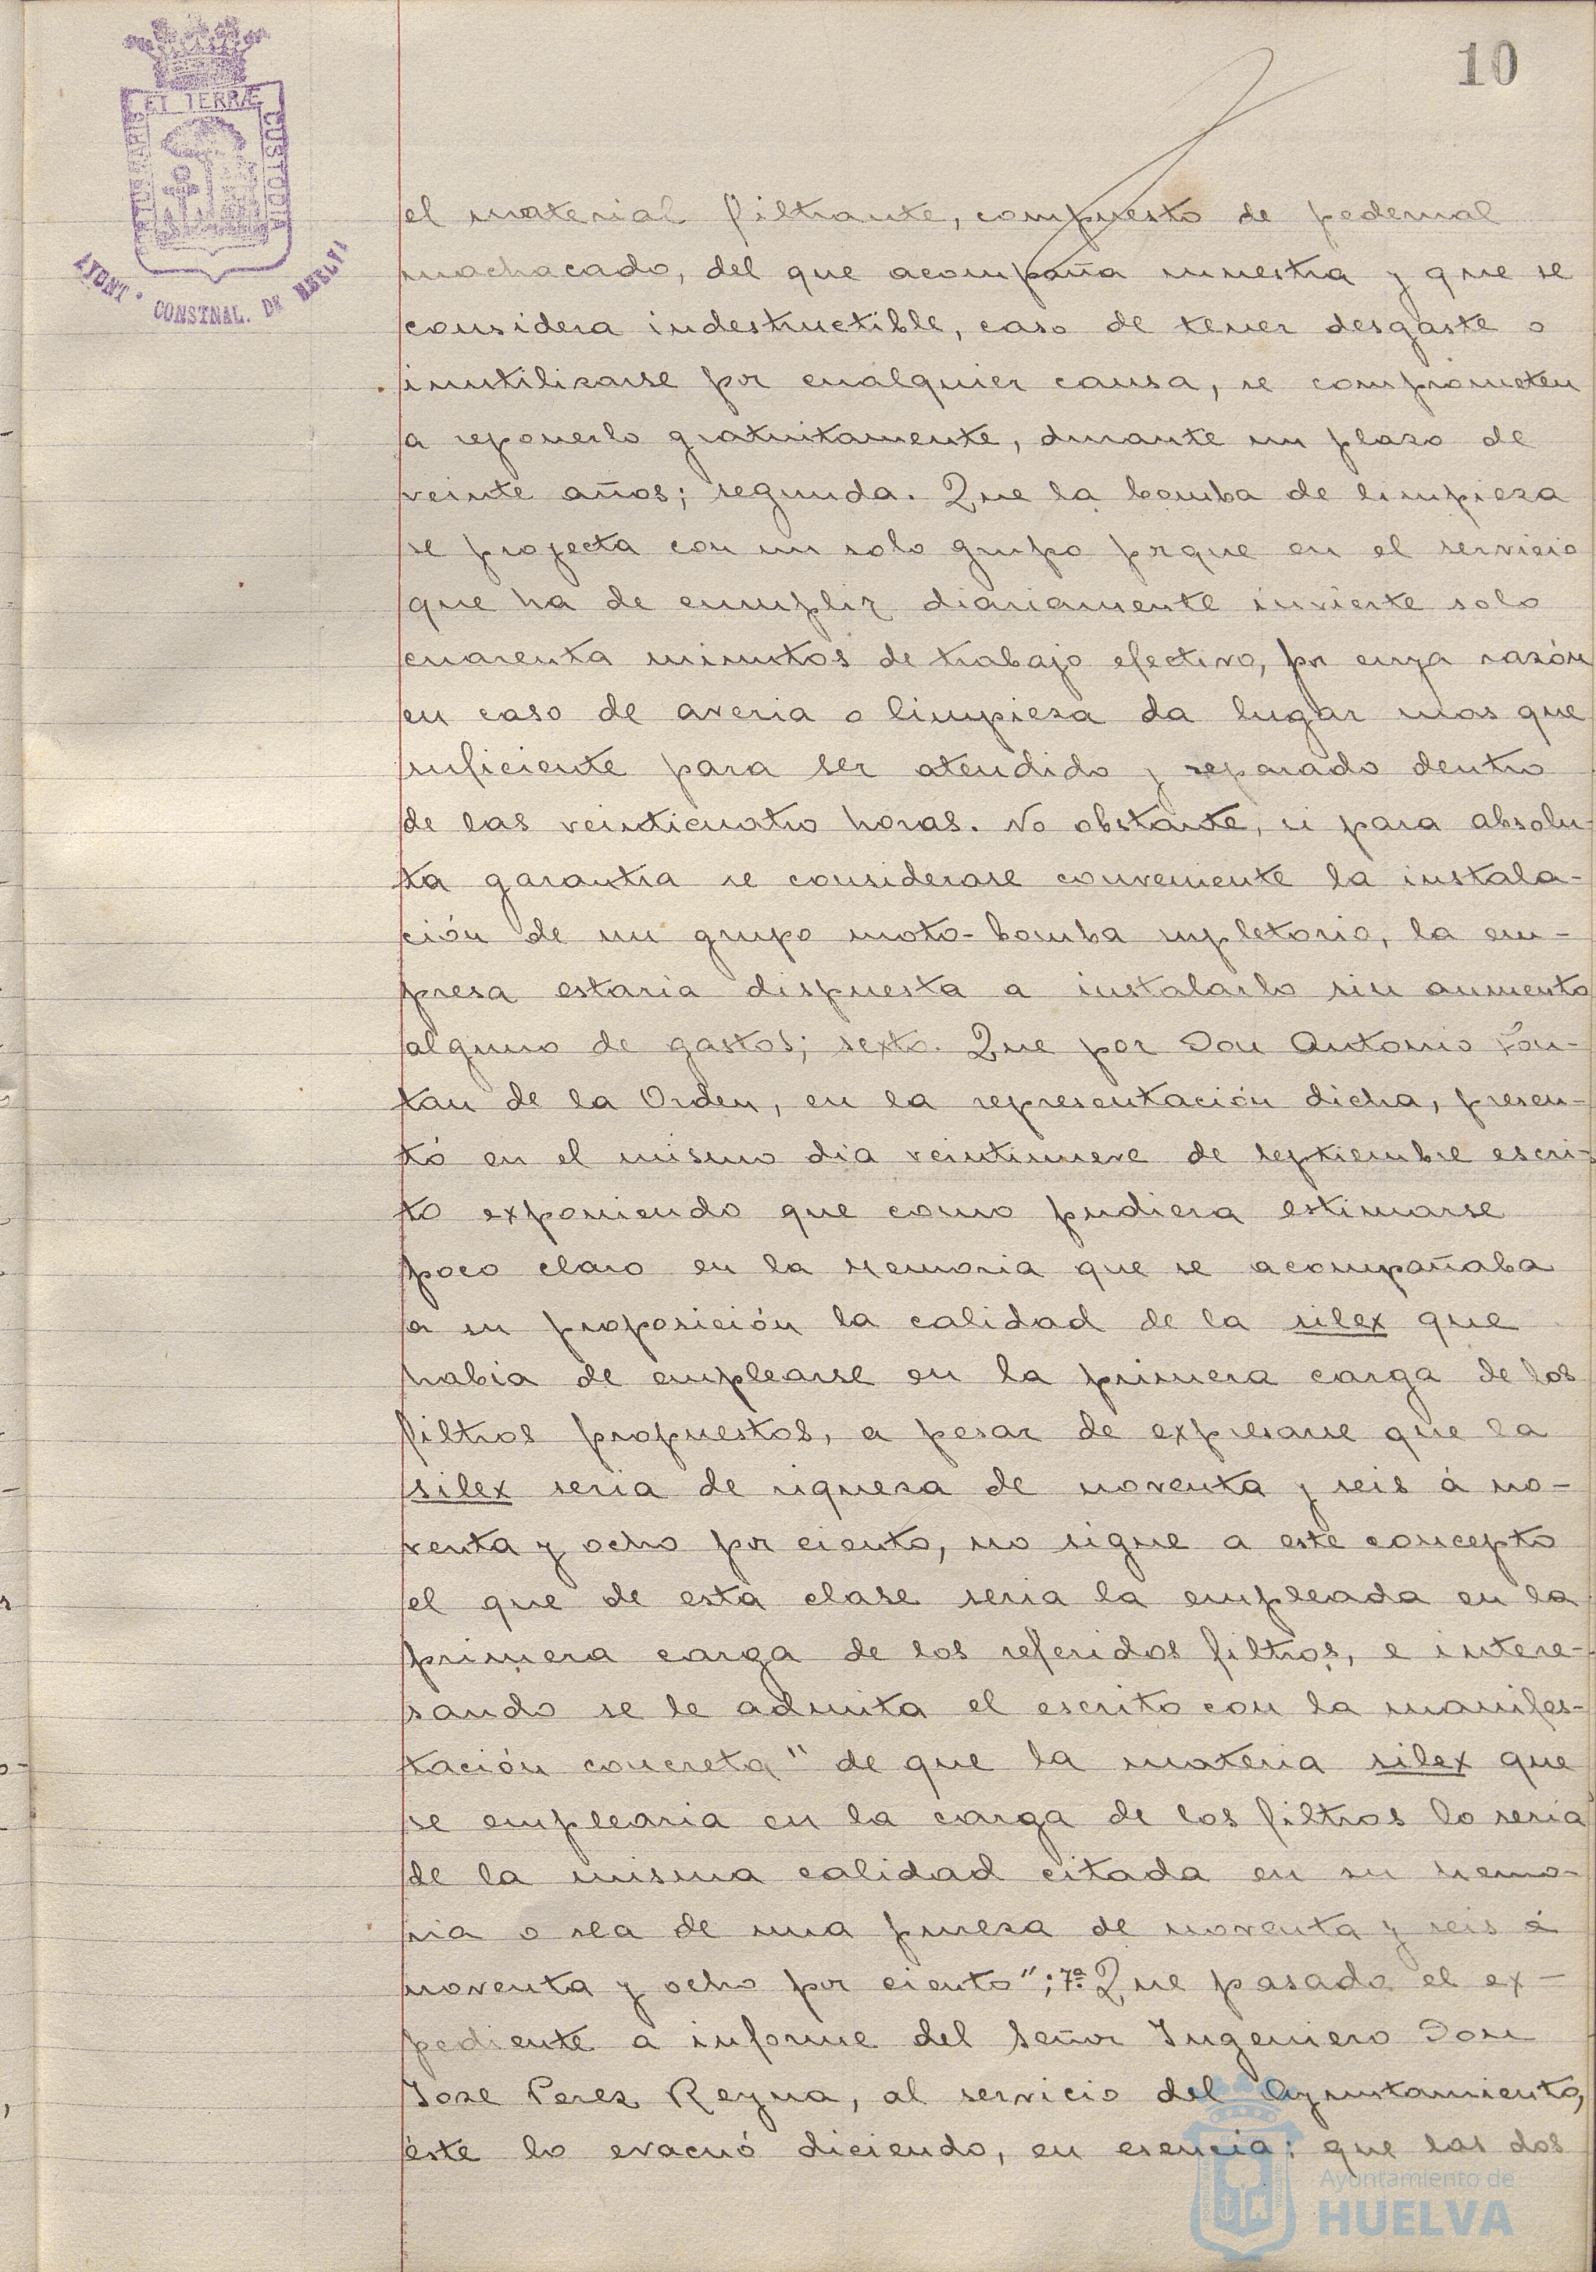 10
ET TERRÆ
CUSTODIA
AYUNT. CONSTNAL. DE HUELVA
el material filtrante, compuesto de pedernal
machacado, del que acompaña muestra y que se
considera indestructible, caso de tener desgaste o
inutilizarse por cualquier causa, se comprometen
a reponerlo gratuitamente, durante un plazo de
veinte años; segunda. Que la bomba de limpieza
se proyecta con un solo grupo porque en el servicio
que ha de cumplir diariamente invierte solo
cuarenta minutos de trabajo efectivo, por cuya razón
en caso de averia o limpieza da lugar mas que
suficiente para ser atendido y reparado dentro
de las veinticuatro horas. No obstante, si para absolu-
ta garantia se considerase conveniente la instala-
ción de un grupo moto-bomba supletorio, la em-
presa estaria dispuesta a instalarlo sin aumento
alguno de gastos; sexto. Que por Don Antonio Fon-
tan de la Orden, en la representación dicha, presen-
tó en el mismo dia veintinueve de septiembre escri-
to exponiendo que como pudiera estimarse
poco claro en la Memoria que se acompañaba
a su proposición la calidad de la silex que
habia de emplearse en la primera carga de los
filtros propuestos, a pesar de expresarse que la
silex seria de riqueza de noventa y seis á no-
venta y ocho por ciento, no sigue a este concepto
el que de esta clase seria la empleada en la
primera carga de los referidos filtros, e intere-
sando se le admita el escrito con la manifes-
tación concreta "de que la materia silex que
se emplearia en la carga de los filtros lo seria
de la misma calidad citada en su Memo-
ria o sea de una pureza de noventa y seis á
noventa y ocho por ciento"; 7ª Que pasado el ex-
pediente a informe del Señor Ingeniero Don
Jose Perez Reyna, al servicio del Ayuntamiento,
éste lo evacuó diciendo, en esencia: que las dos
Ayuntamiento de
HUELVA